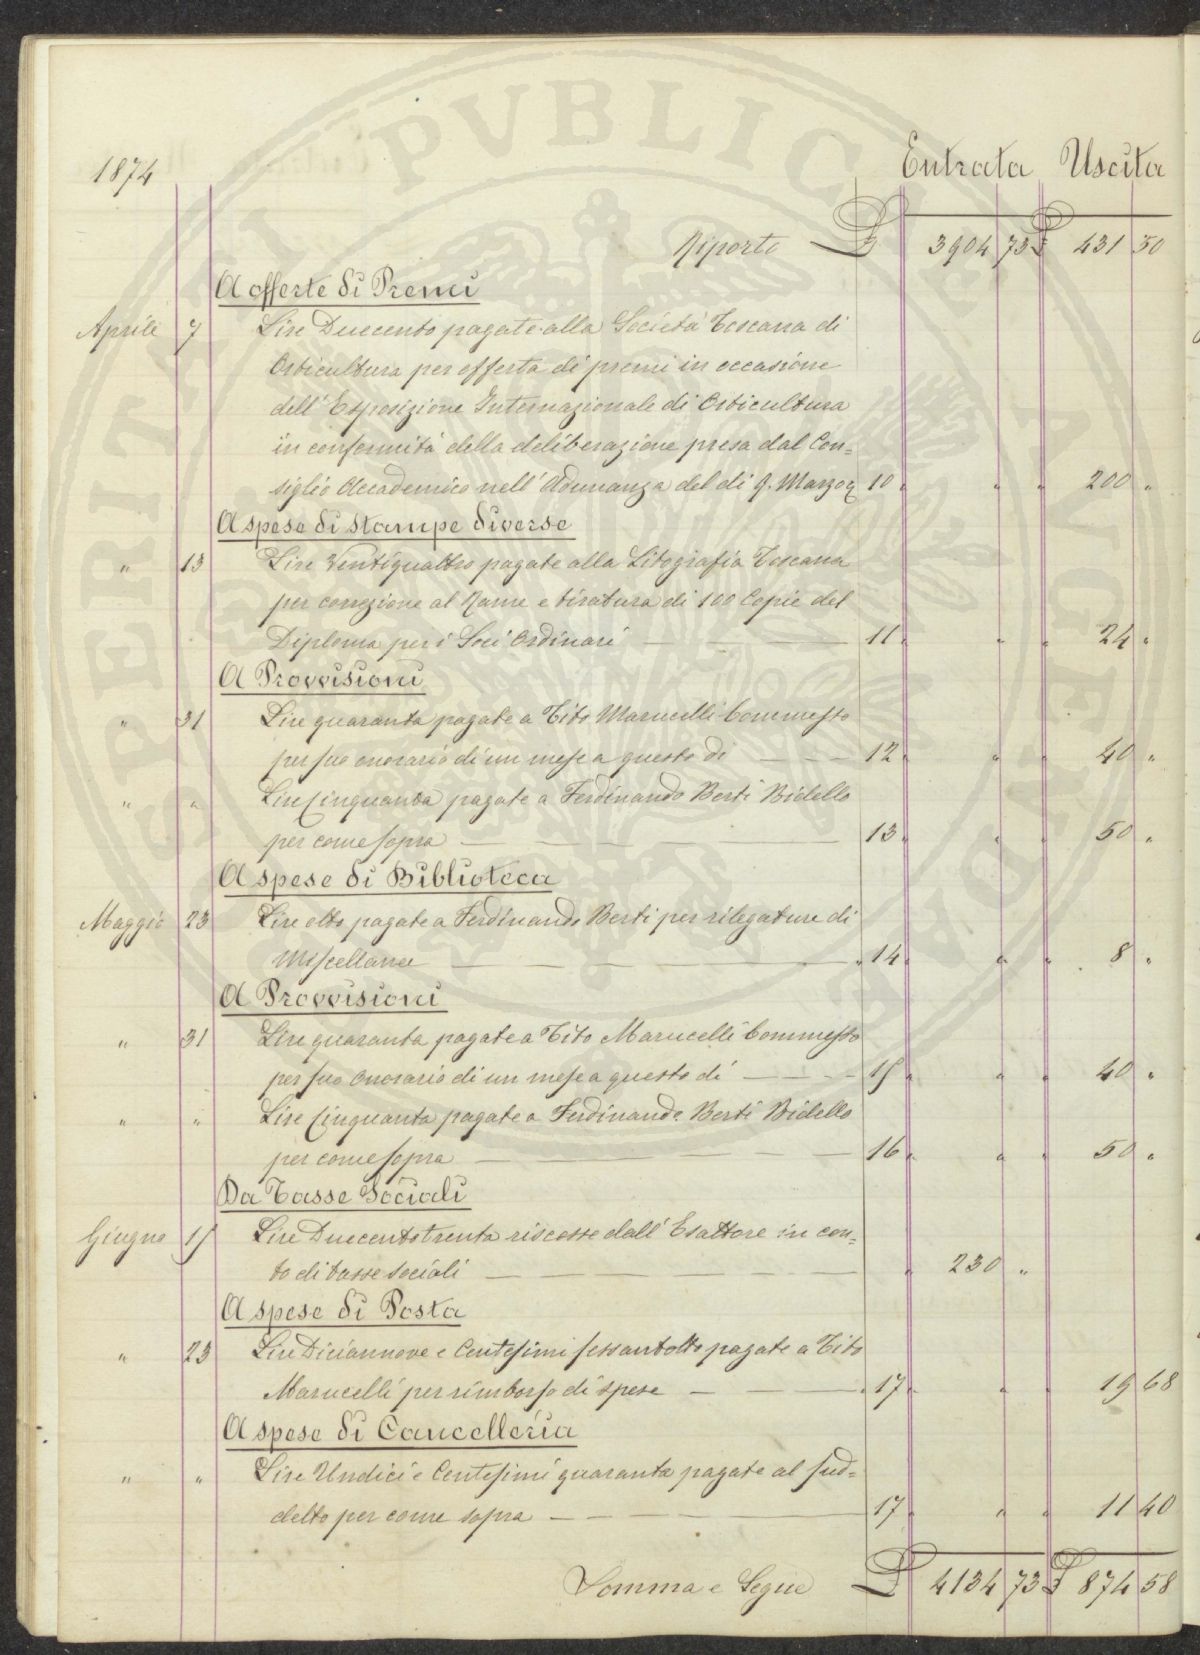 1874
Entrata Uscita
Riporto £ 3904 73 £ 431 50
A offerte di Premi
Aprile 7 Lire Duecento pagate alla Società Toscana di
Orticultura per offerta di premi in occasione
dell'Esposizione Internazionale di Orticultura
in conformità della deliberazione presa dal Con=
siglio Accademico nell'Adunanza del di 9. Marzo 10 " " " 200 "
A spese di stampe diverse
" 13 Lire Ventiquattro pagate alla Litografia Toscana
per correzione al Rame e tiratura di 100 Copie del
Diploma per i Soci Ordinari 11 " " " 24 "
A Provvisioni
" 31 Lire quaranta pagate a Tito Marucelli Commesso
per suo onorario di un mese a questo di 12 " " " 40 "
" " Lire Cinquanta pagate a Ferdinando Berti Bidello
per come sopra 13 " " " 50 "
A spese di Biblioteca
Maggio 23 Lire otto pagate a Ferdinando Berti per rilegature di
Miscellanee 14 " " " 8 "
A Provvisioni
" 31 Lire quaranta pagate a Tito Marucelli Commesso
per suo onorario di un mese a questo di 15 " " " 40 "
" " Lire Cinquanta pagate a Ferdinando Berti Bidello
per come sopra 16 " " " 50 "
Da Tasse Sociali
Giugno 15 Lire Duecentotrenta riscosse dall'Esattore in con=
to di tasse sociali " 230 "
A spese di Posta
" 23 Lire Diciannove e Centesimi sessantotto pagate a Tito
Marucelli per rimborso di spese 17 " " " 19 68
A spese di Cancelleria
" " Lire Undici e Centesimi quaranta pagate al sud=
detto per come sopra 17 " " " 11 40
Somma e Segue £ 4134 73 £ 874 58